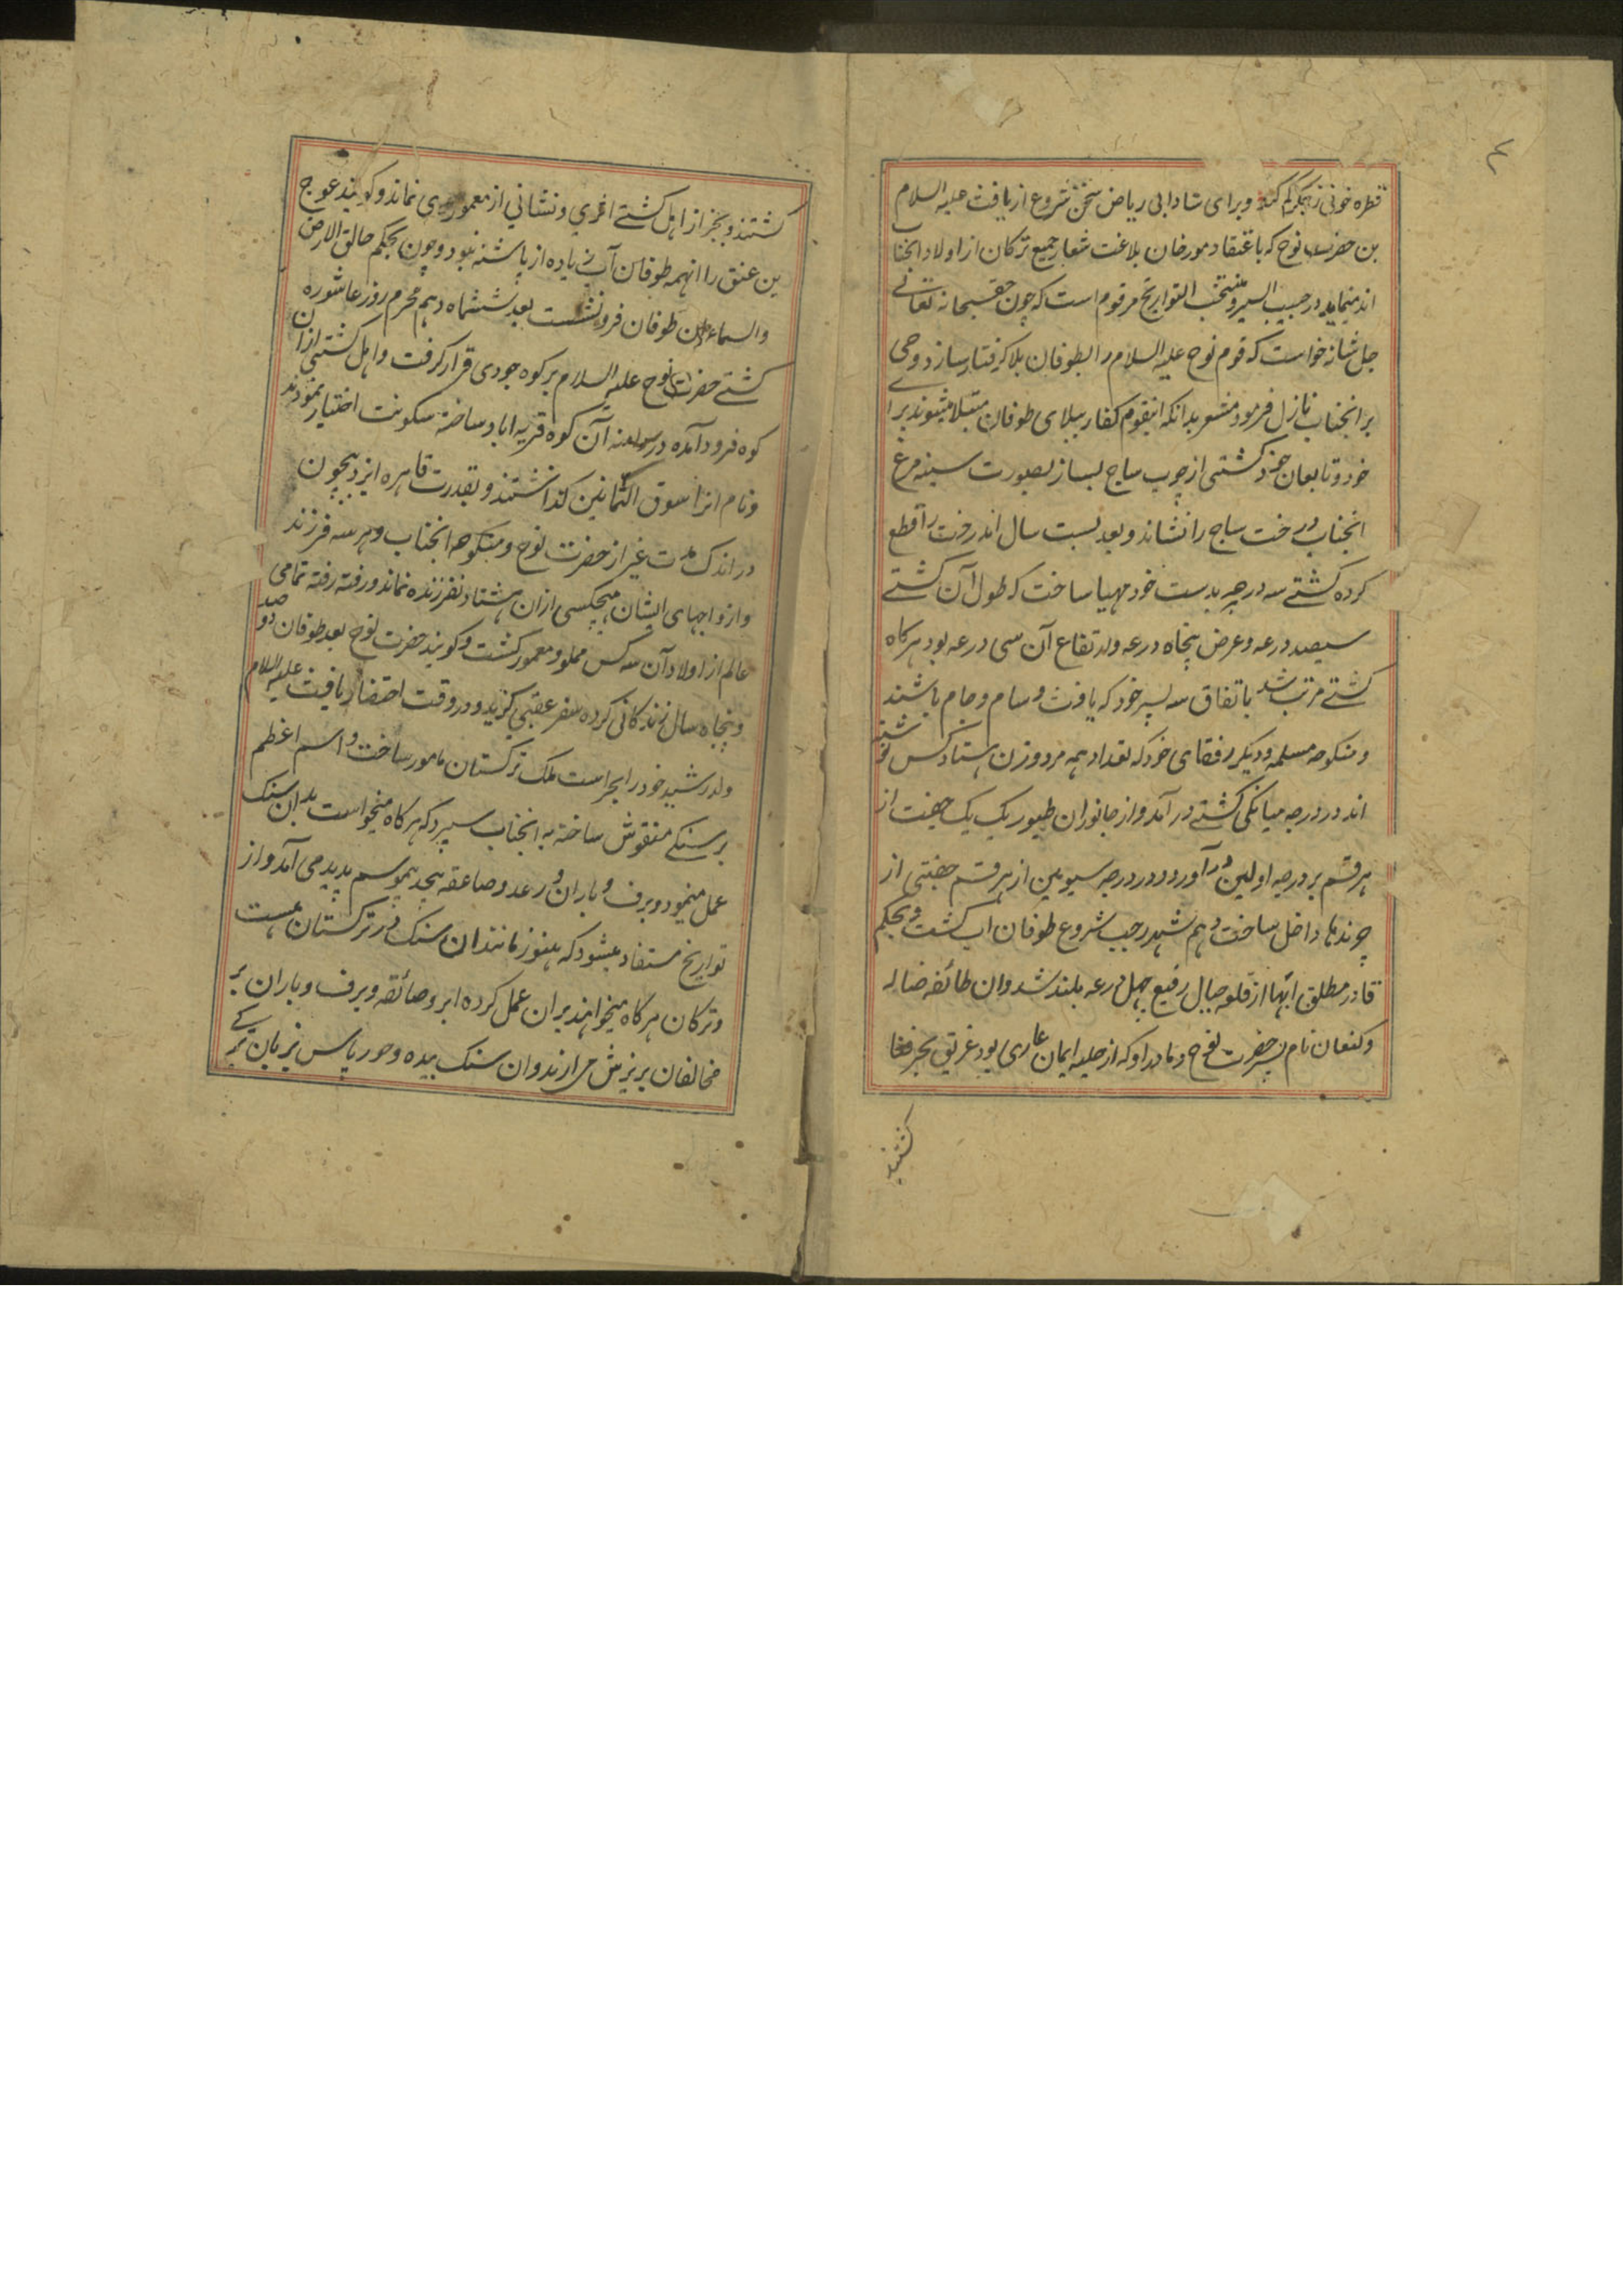 قطره خونی ز جگر کم کند و برای شادابی ریاض سخن شروع از یافث علیه السلام
بن حضرت نوح که باعتقاد مورخان بلاغت شعار جمیع ترکان از اولاد انجنا
اند مینماید در حبیب السیر و منتخب التواریخ مرقوم است که چون حق سبحانه تعالے
جل شانه خواست که قوم نوح علیه السلام را بطوفان بلا کرفتار سازد وحی
بر انجناب نازل فرمود مشعر بدانکه اینقوم کفار ببلای طوفان مبتلا میشوند برای
خود و تابعان خود کشتی از چوب ساج بساز بصورت سینه مرغ
انجناب درخت ساج را نشاند و بعد بست سال اندرخت را قطع
کرده کشتے سه درجه بدست خود مهیا ساخت که طول آن کشتے
سیصد درعه و عرض پنجاه درعه و ارتفاع آن سی درعه بود هرکاه
کشتے مرتب شد باتفاق سه پسر خود که یافث و سام و حام باشند
و منکوحه مسلمه و دیکر رفقای خود که تعداد همه مرد و زن هشتاد کس نوشته
اند در درجه میانکی کشتے در آمد و از جانوران طیور یک یک جفت از
هر قسم بر درجه اولین در آورد و در درجه سیومین از هر قسم جفتی از
چرندها داخل ساخت دهم شهر رجب شروع طوفان اب کشت و بحکم
قادر مطلق ابها از قلو جبال رفیع چهل درعه بلند شد و ان طائفه ضاله
و کنعان نام پسر حضرت نوح و مادر او که از حلیه ایمان عاری بود غریق بحر فنا
کشتند
کشتند و بجز از اهل کشتے اثری و نشانی از معموری نماند و کویند عوج
بن عنق را انهمه طوفان آب زیاده از پاشنه نبود و چون بحکم خالق الارض
والسماء ان طوفان فرو نشست بعد ششماه دهم محرم روز عاشوره
کشتے حضرت نوح علیه السلام بر کوه جودی قرار کرفت و اهل کشتی ازان
کوه فرود آمده در آن کوه قریه اباد ساخته سکونت اختیار نمودند
و نام انرا سوق الثمانین کذاشتند و بقدرت قاهره ایزد بیچون
در اندک مدت غیر از حضرت نوح و منکوحه انجناب و هر سه فرزند
و ازواجهای ایشان هیچکسی ازان هشتاد نفر زنده نماند و رفته رفته تمامی
عالم از اولاد آن سه کس مملو و معمور کشت و کویند حضرت نوح بعد طوفان دو صد
و پنجاه سال زندکانی کرده سفر عقبی کزید و در وقت احتضار یافث علیه السلام
ولد رشید خود را بحراست ملک ترکستان مامور ساخت و اسم اعظم
بر سنکے منقوش ساخته به انجناب سپرد که هرکاه میخواست بدان سنک
عمل مینمود و برف و باران و رعد و صاعقه بیحد بیموسم پدید می آمد و از
تواریخ مستفاد میشود که هنوز مانند ان سنک در ترکستان هست
و ترکان هرکاه میخواهند بران عمل کرده ابر و صائقه و برف و باران بر
مخالفان بریزش می ارند و ان سنک یده و جور یاس بزبان ترکے